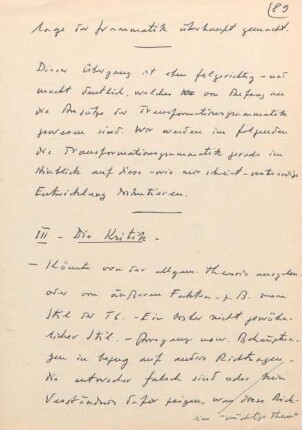 (89
lage der Grammatik überhaupt gemacht.
Dieser Übergang ist eben folgerichtig - und
macht deutlich, welches von Anfang an
die Ansätze der Transformationsgrammatik
gewesen sind. Wir werden im folgenden
die Transformationsgrammatik gerade im
Hinblick auf diese - wie mir scheint - notwendige
Entwicklung diskutieren.
III - Die Kritik -
- Könnte von der allgem. Theorie ausgehen
oder von äußeren Fakten - z.B. vom
Stil der TG. - Ein bisher nicht gewöhn-
licher Stil. - Arroganz usw. Behauptun-
gen in bezug auf andere Richtungen,
die entweder falsch sind oder kein
Verständnis dafür zeigen, was diese Rich-